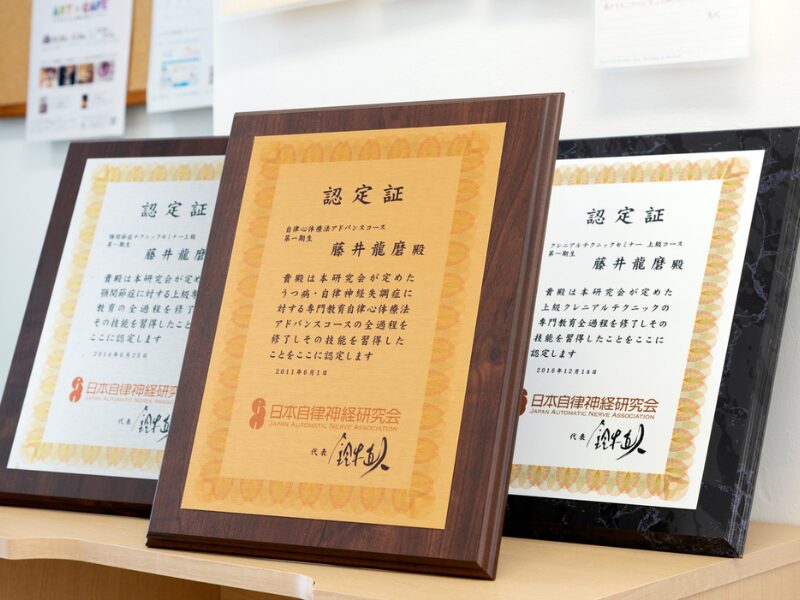 認定証
顎関節症テクニックセミナー上級
第一期生
藤井龍磨
貴殿は本研究会が定め
顎関節症に対する上級専
教育の全過程を修了
その技能を習得したこと
ここに認定します
2014年6月25日
日本自律神経研究
JAPAN AUTOMATIC NERVE ASSOCI
代表
認定証
自律心体療法アドバンスコース
第一期生
藤井龍磨殿
貴殿は本研究会が定めた
うつ病・自律神経失調症に
対する専門教育自律心体療法
アドバンスコースの全過程を
修了しその技能を習得した
ことをここに認定します
2011年6月1日
日本自律神経研究会
JAPAN AUTOMATIC NERVE ASSOCIATION
代表
認定証
クレニアルテクニックセミナー 上級コース
第一期生
藤井龍磨殿
貴殿は本研究会が定めた
上級クレニアルテクニックの
専門教育全過程を修了しその
技能を習得したことをここに
認定します
2016年12月14日
日本自律神経研究会
JAPAN AUTOMATIC NERVE ASSOCIATION
代表